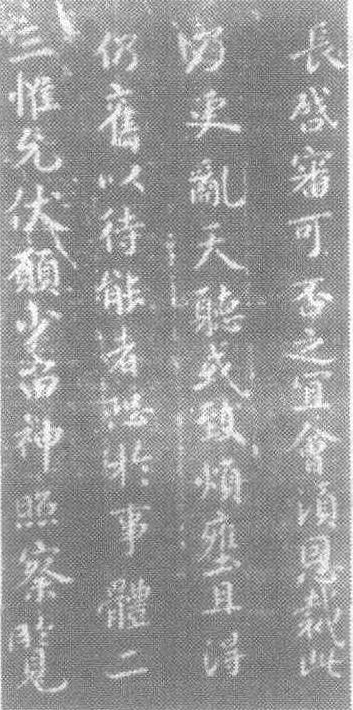 長啓審可否之宜會須恩裁此
更亂天聽或致煩壅且得
仍舊以待能者於事體二
三惟允伏願少留神照察見